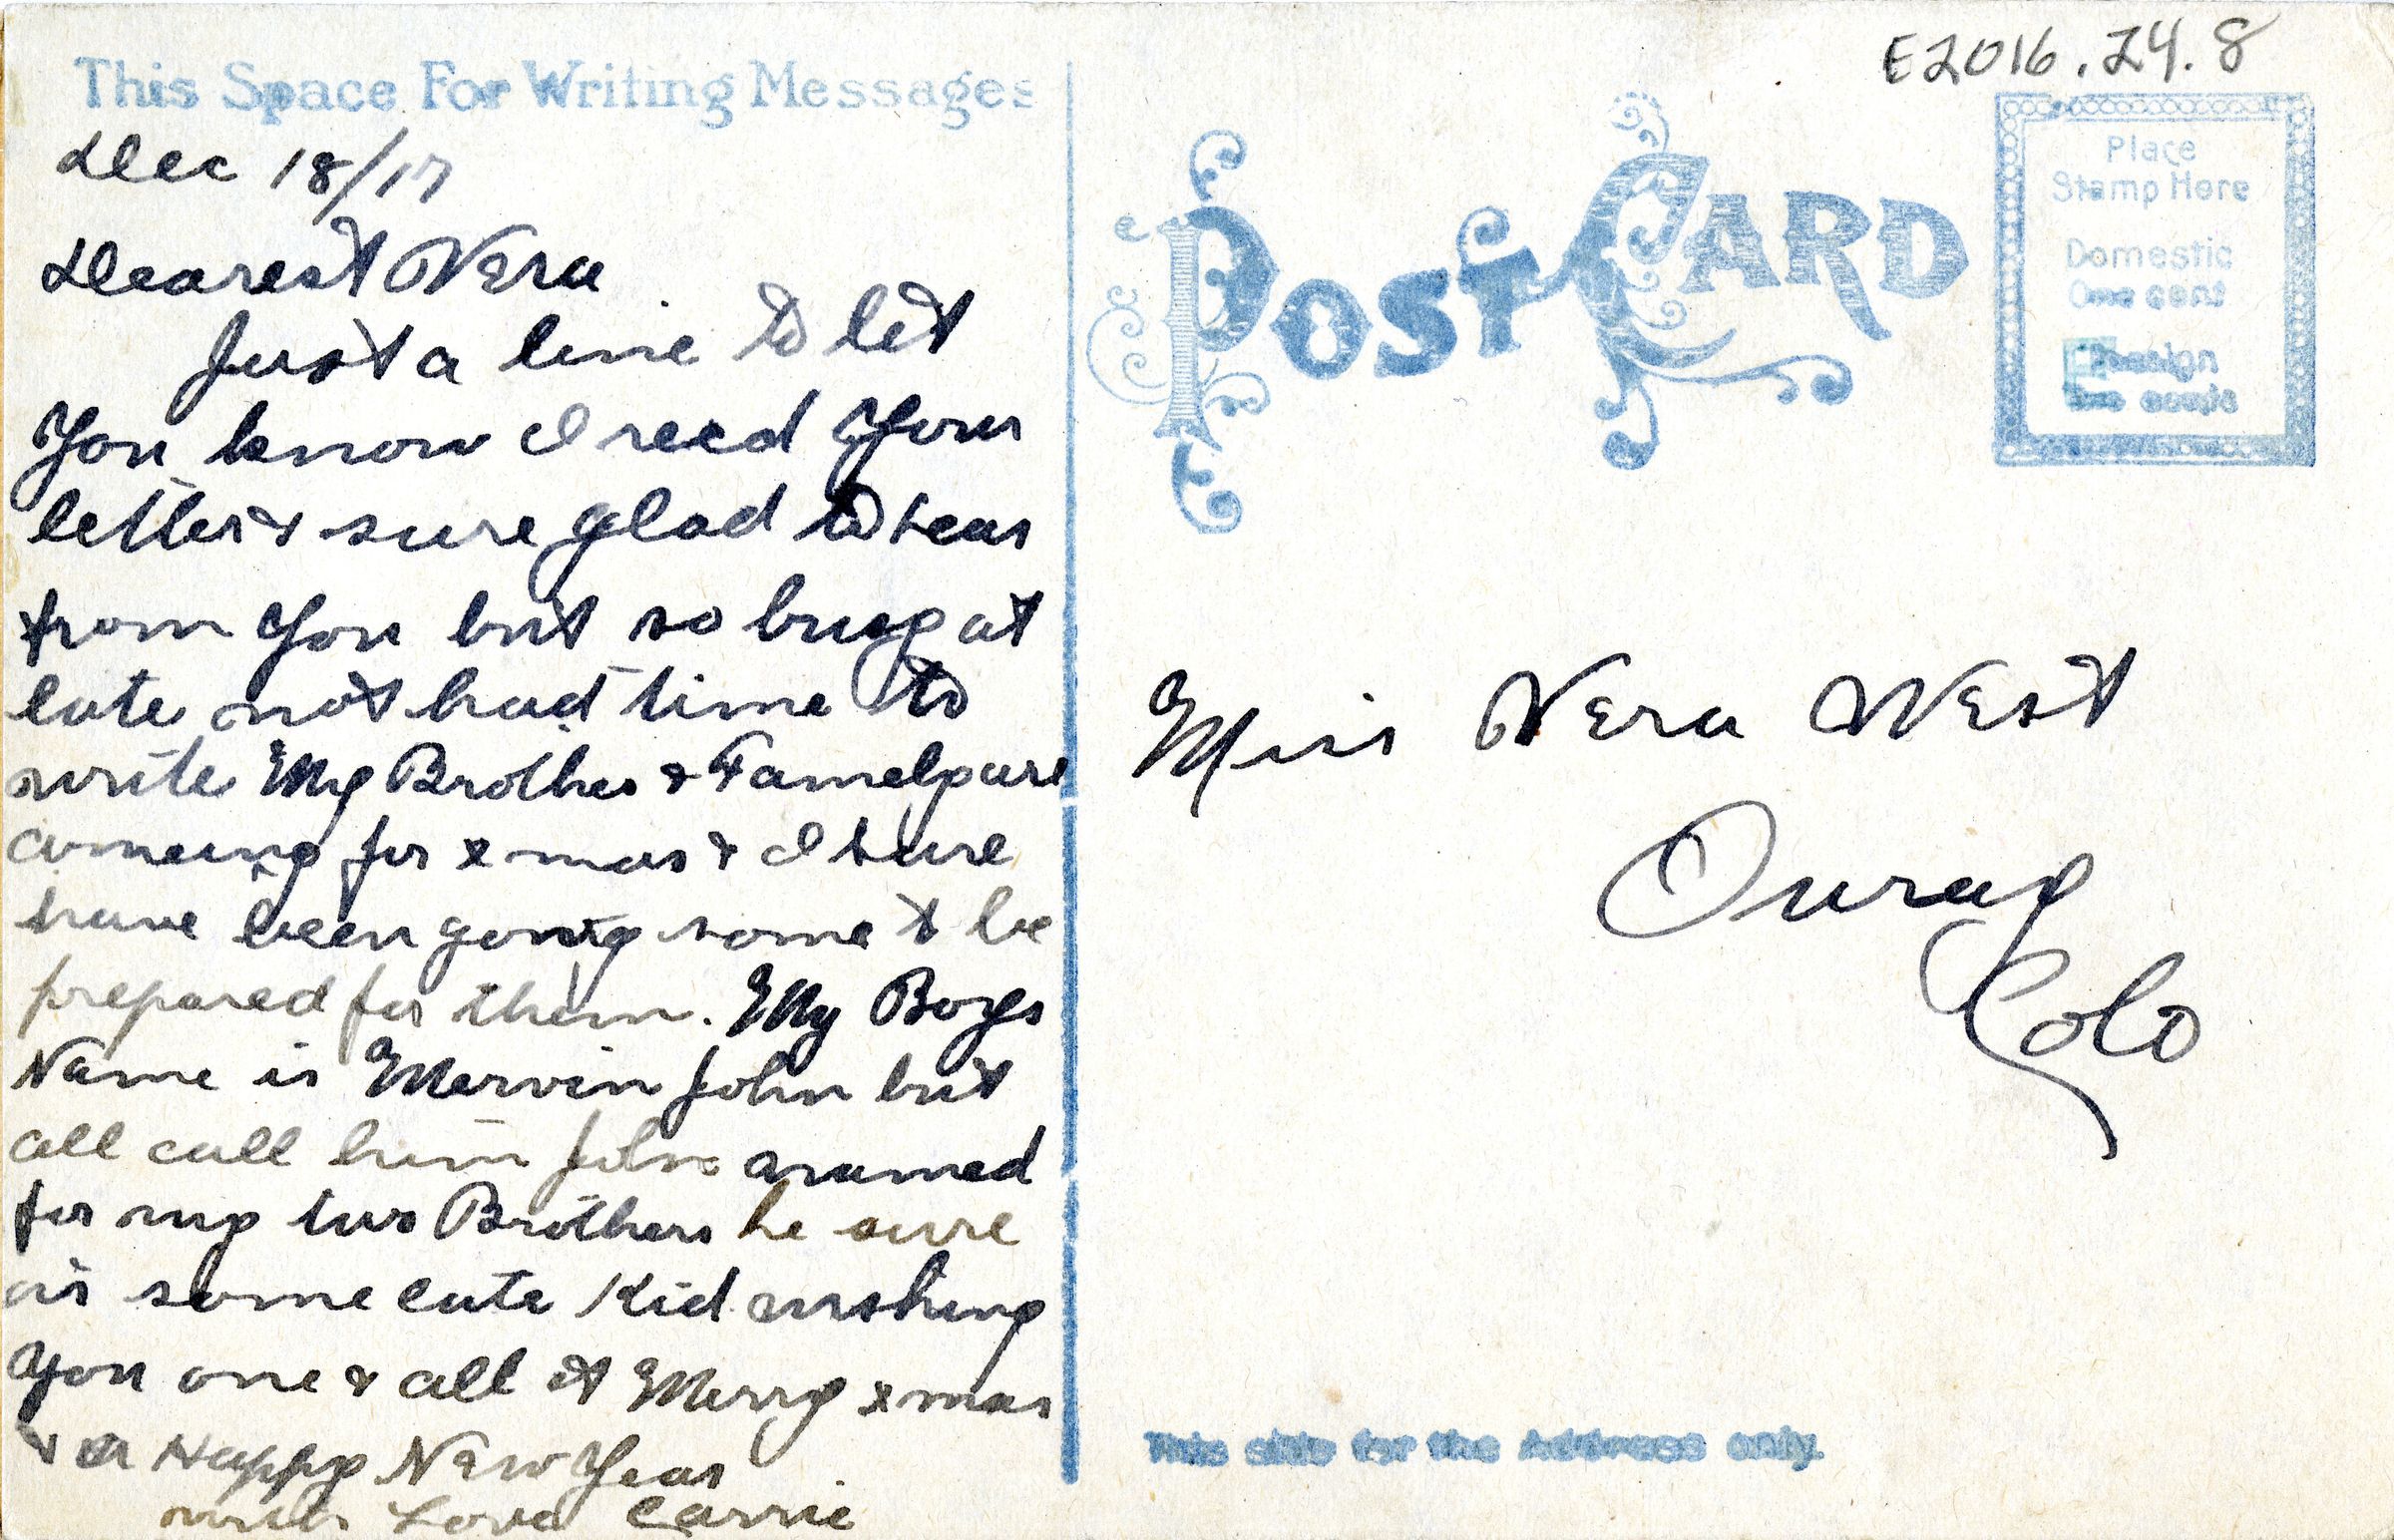 This Space For Writing Messages
Dec 18/17
Dearest Vera
Just a line to let
You know I recd Your
letter & sure glad to hear
from You but so busy at
late not had time to
write My Brother & Famely are
comeing for xmas & I sure
have been going some to be
prepared for them. My Boys
Name is Mervin John but
all call him John named
for my two Brothers he sure
is some cute Kid wishing
You one & all A Merry xmas
& a Happy New Year
with Love Carrie
E2016.24.8
POST CARD
Place
Stamp Here
Domestic
One cent
Foreign
Two cents
Miss Vera West
Ouray
Colo
This side for the Address only.